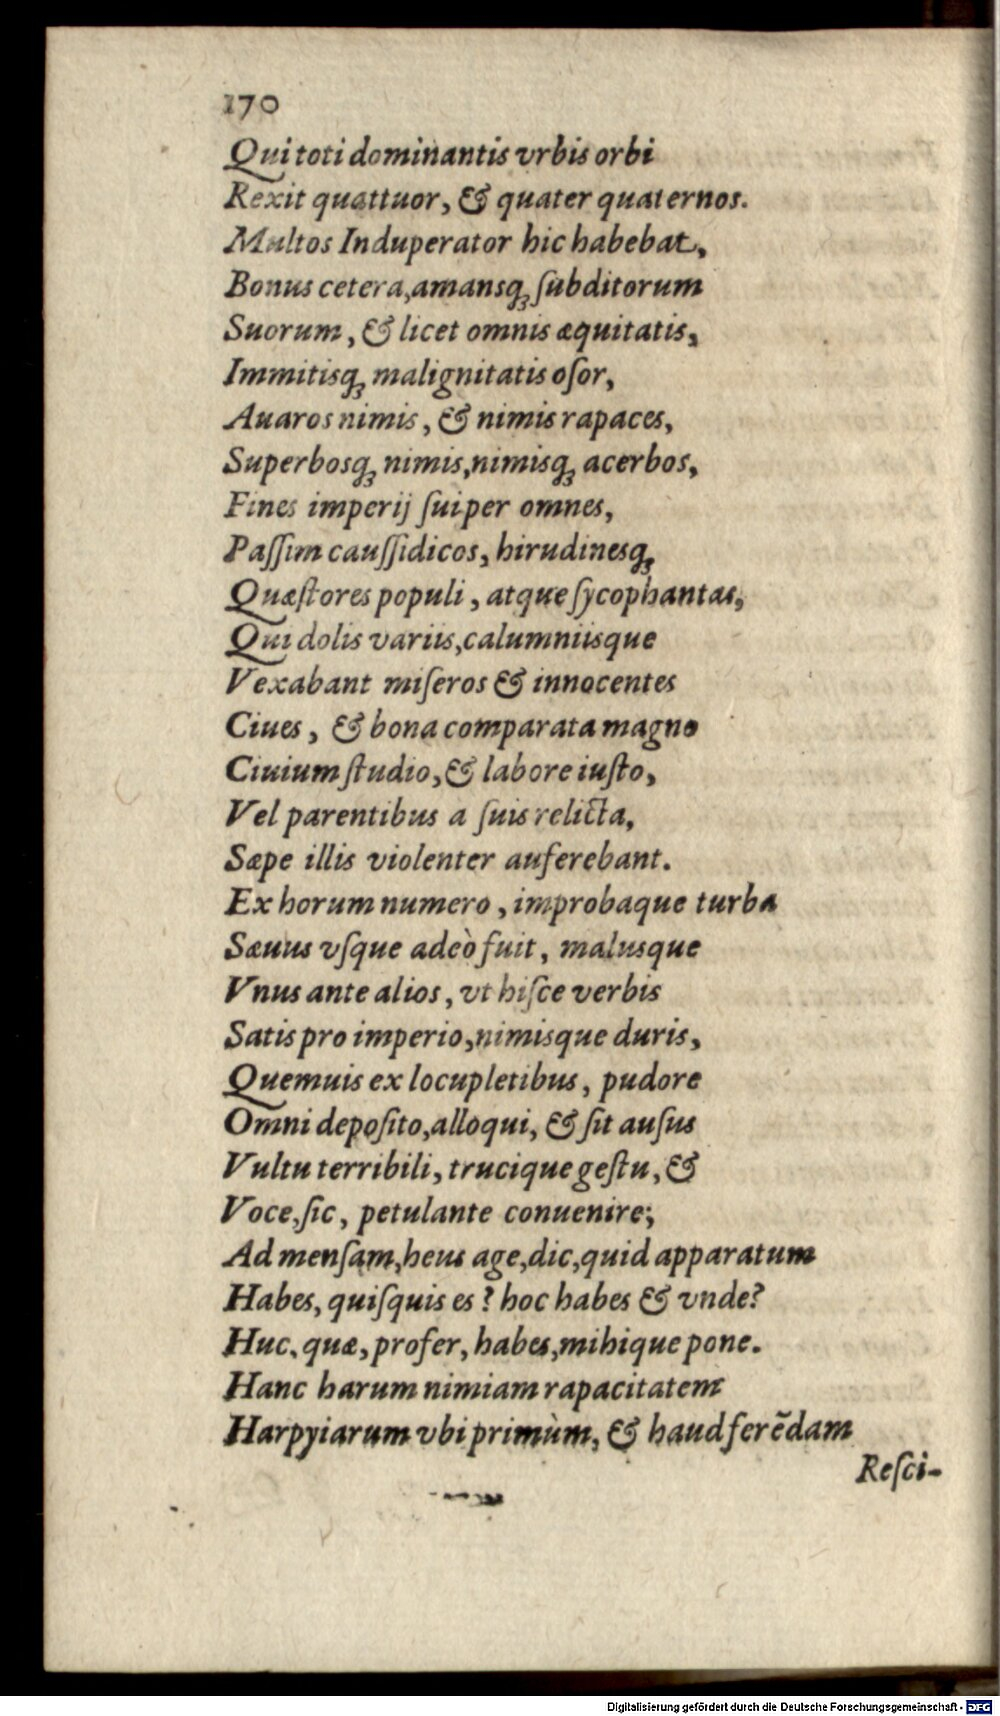 170
Qui toti dominantis vrbis orbi
Rexit quattuor, & quater quaternos.
Multos Induperator hic habebat,
Bonus cetera, amansq́ꝫ ſubditorum
Suorum, & licet omnis æquitatis,
Immitisqꝫ malignitatis oſor,
Auaros nimis, & nimis rapaces,
Superbosqꝫ nimis, nimisqꝫ acerbos,
Fines imperij ſui per omnes,
Paſſim cauſſidicos, hirudinesqꝫ
Quæſtores populi, atque ſycophantas,
Qui dolis variis, calumniisque
Vexabant miſeros & innocentes
Ciues, & bona comparata magno
Ciuium ſtudio, & labore iuſto,
Vel parentibus a ſuis relicta,
Sæpe illis violenter auferebant.
Ex horum numero, improbaque turba
Sæuus vſque adeò fuit, malusque
Vnus ante alios, vt hiſce verbis
Satis pro imperio, nimisque duris,
Quemuis ex locupletibus, pudore
Omni depoſito, alloqui, & ſit auſus
Vultu terribili, trucique geſtu, &
Voce, ſic, petulante conuenire;
Ad menſam, heus age, dic, quid apparatum
Habes, quiſquis es? hoc habes & vnde?
Huc, quæ, profer, habes, mihique pone.
Hanc harum nimiam rapacitatem
Harpyiarum vbi primùm, & haud ferẽdam
Reſci-
Digitalisierung gefördert durch die Deutsche Forschungsgemeinschaft - DFG